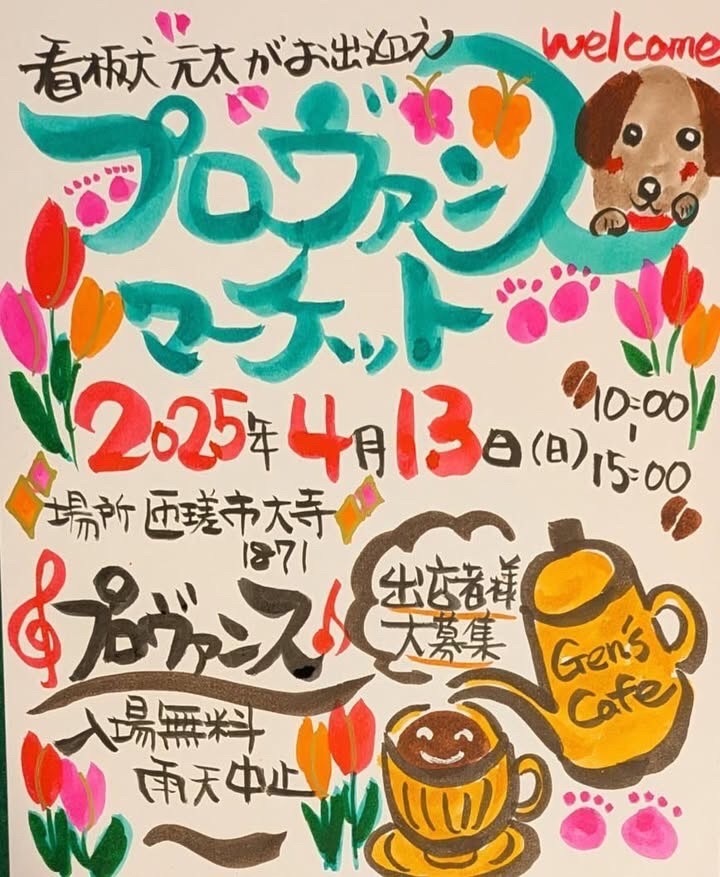 看板犬"元太がお出迎え
welcome
プロヴァンス
マーケット
2025年4月13日(日)
10:00
-
15:00
場所 匝瑳市大寺
1871
プロヴァンス
出店者様
大募集
入場無料
雨天中止
Gen's
Cafe